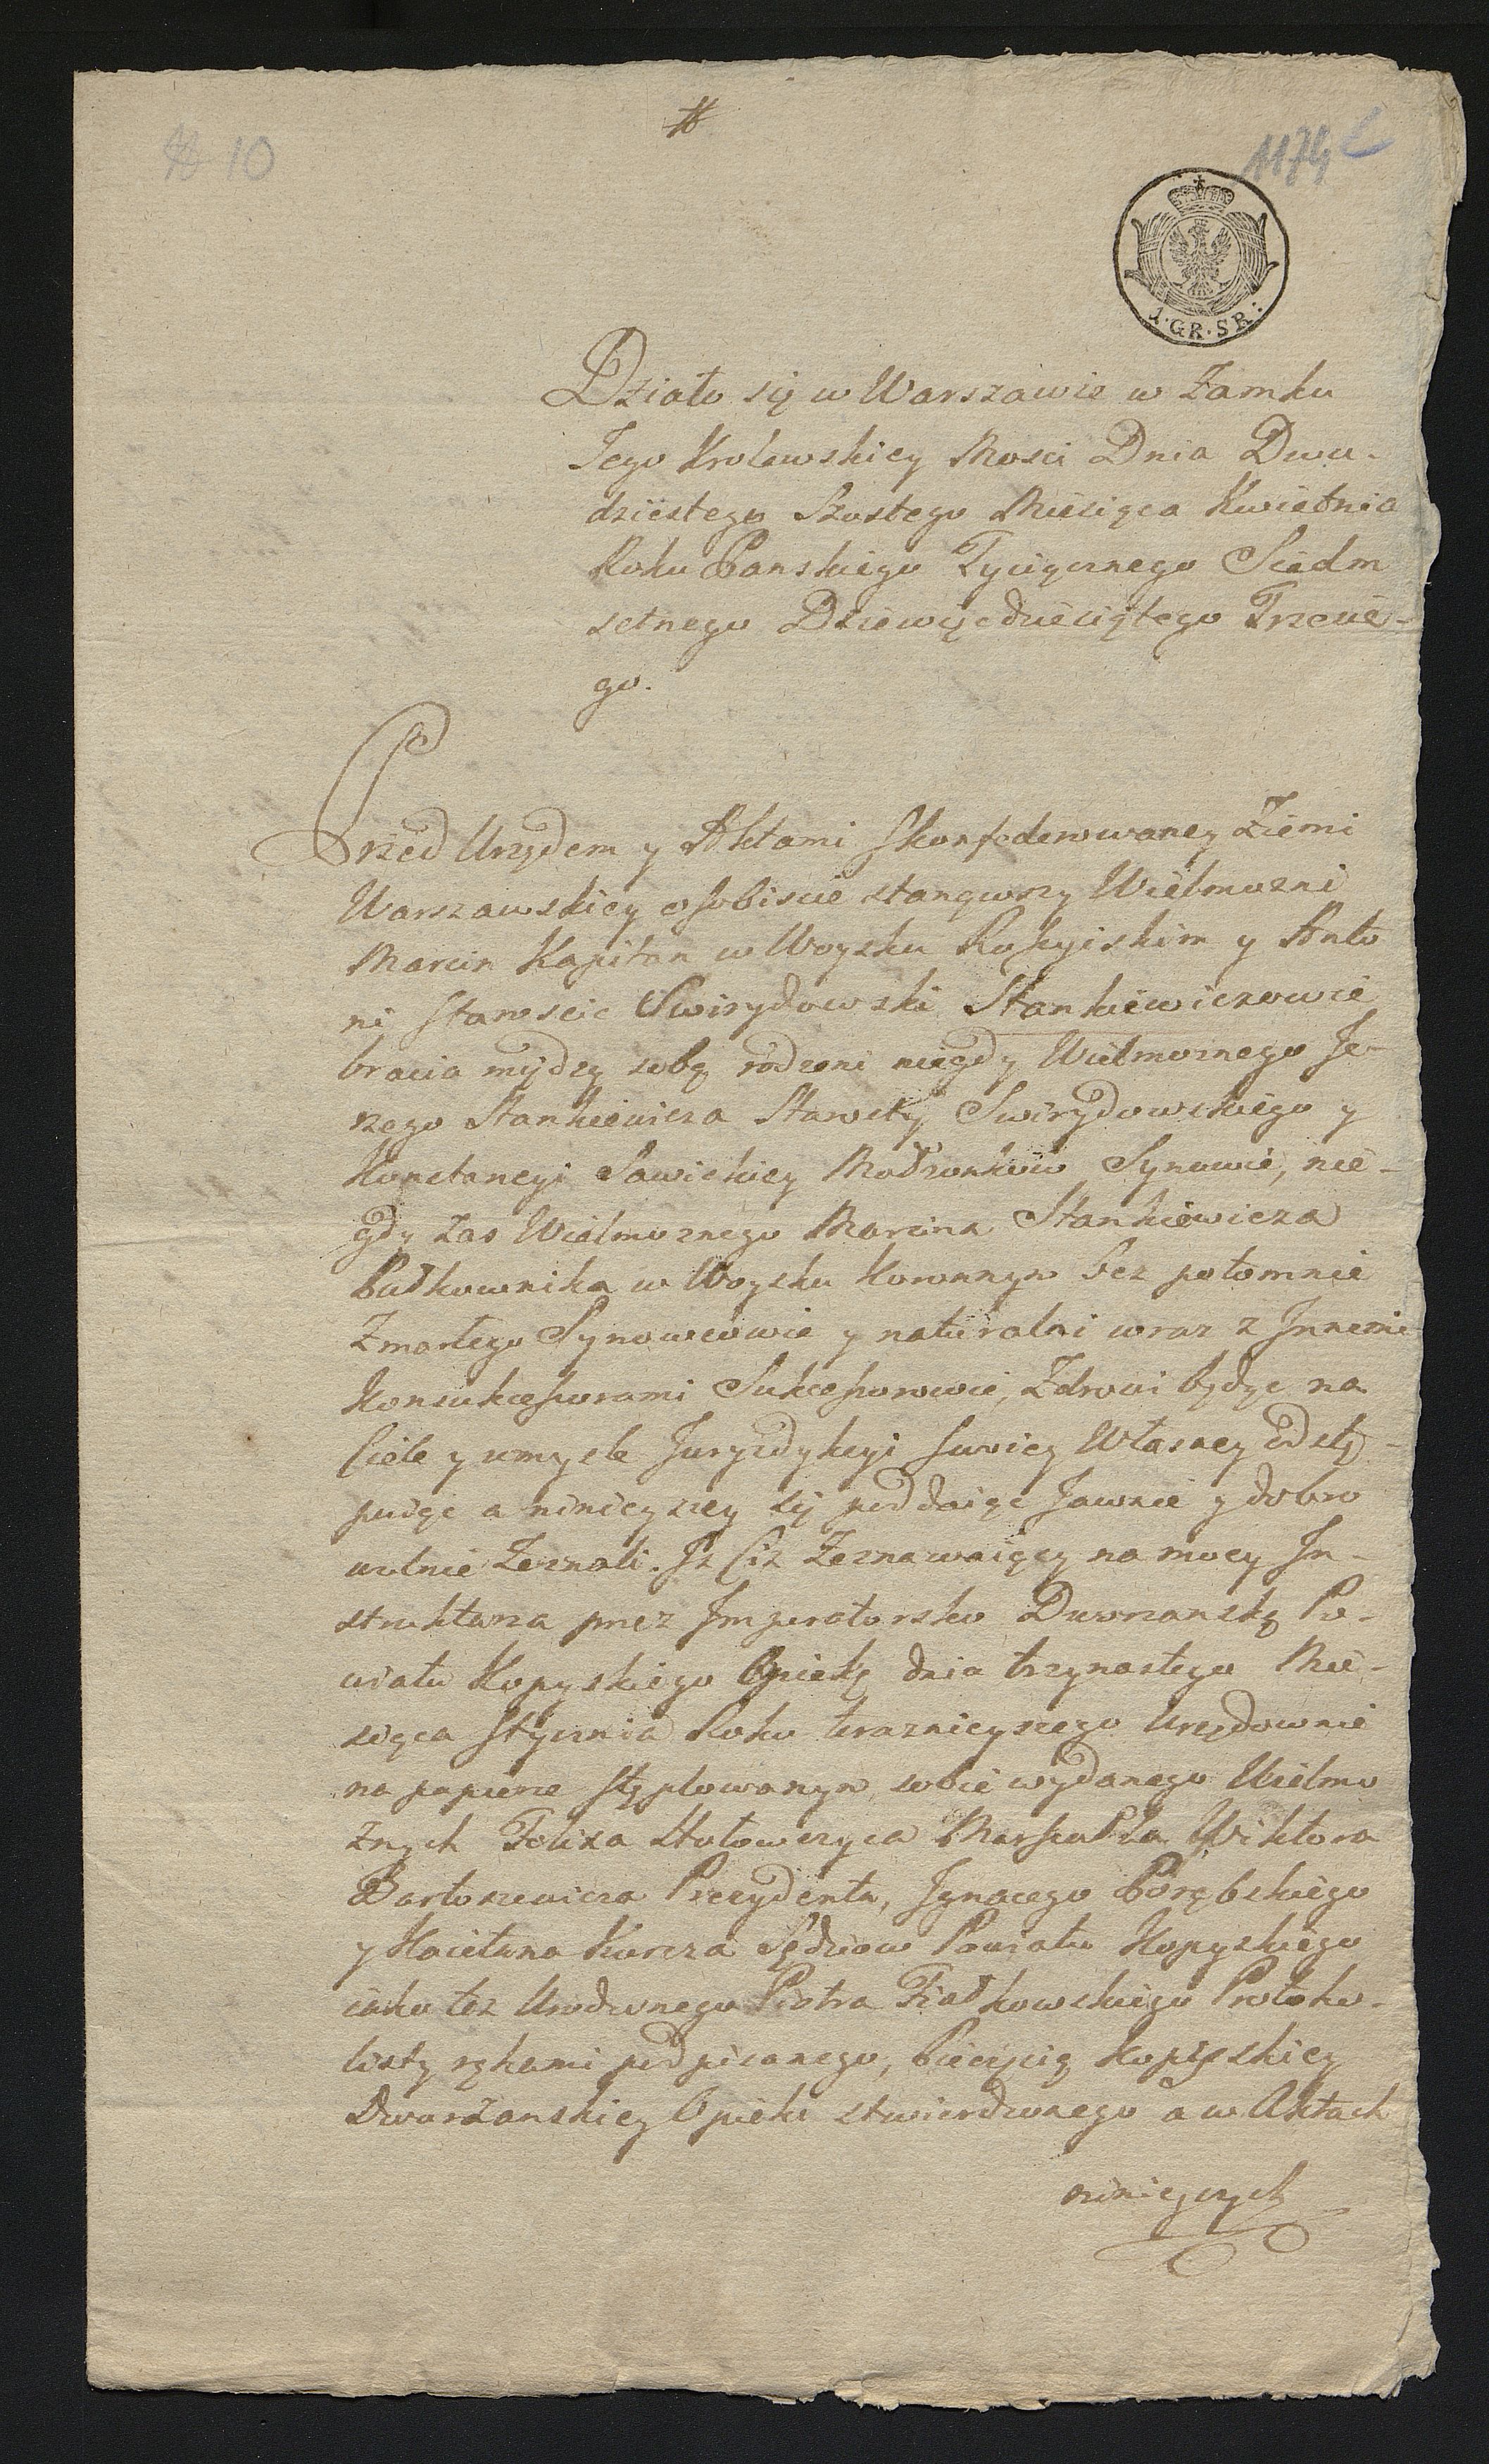 # 10
#
1174
1·GR·SR:
Działo się w Warszawie w Zamku
Jego Krolewskiey Mosci Dnia Dwu-
dziestego Szostego Miesiąca Kwietnia
Roku Panskiego Tysiącznego Siedm
setnego Dziewięcdziesiątego Trzecie-
go.
Przed Urzędem y Aktami Skonfederowaney Ziemi
Warszawskiey osobiscie stanąwszy Wielmozni
Marcin Kapitan w Woysku Rossyiskim y Anto
ni Staroscic Swirydowski Stankiewiczowie
bracia między sobą rodzeni niegdy Wielmoznego Je-
rzego Stankiewicza Starosty Swirydowskiego y
Konstancyi Sawickiey Małzonkow Synowie, nie-
gdy zas Wielmoznego Marcina Stankiewicza
Pułkownika w Woysku Koronnym bez potomnie
Zmarłego Synowcowie y naturalni wraz z Innemi
Konsukcessorami Sukcessorowie, Zdrowi będąc na
Ciele y umysle Juryzdykcyi swoiey Własney odstę-
puiąc a ninieyszey się poddaiąc Jawnie y dobro
wolnie Zeznali. Iz Ciz Zeznawaiący na mocy In-
struktarza przez Imperatorsko Dworzanską Po-
wiatu Kopyskiego Opiekę dnia trzynastego Mie-
siąca Stycznia Roku teraznieyszego Urzędownie
na papierze stęplowanym sobie wydanego Wielmo
znych Felixa Hołowczyca Marszałka Wiktora
Bartoszewicza Prezydenta, Ignacego Porębskiego
y Kaietana Kurcza Sędziow Powiatu Kopyskiego
iako tez Urodzonego Piotra Fiałkowskiego Protoko-
listy rękami podpisanego, Pieczęcią Kopyskiey
Dworzanskiey Opieki stwierdzonego a w Aktach
ninieyszych